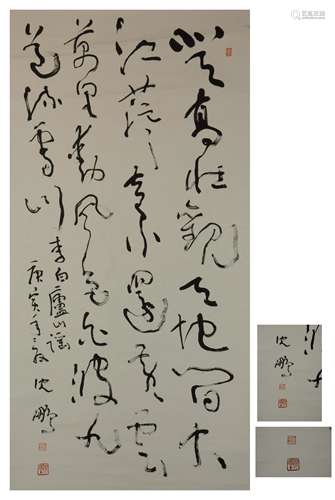 登高壯觀天地間大
江茫茫去不還黃雲
萬里動風色白波九
道流雪山
李白廬山謠
庚寅年
沈鵬
沈鵬